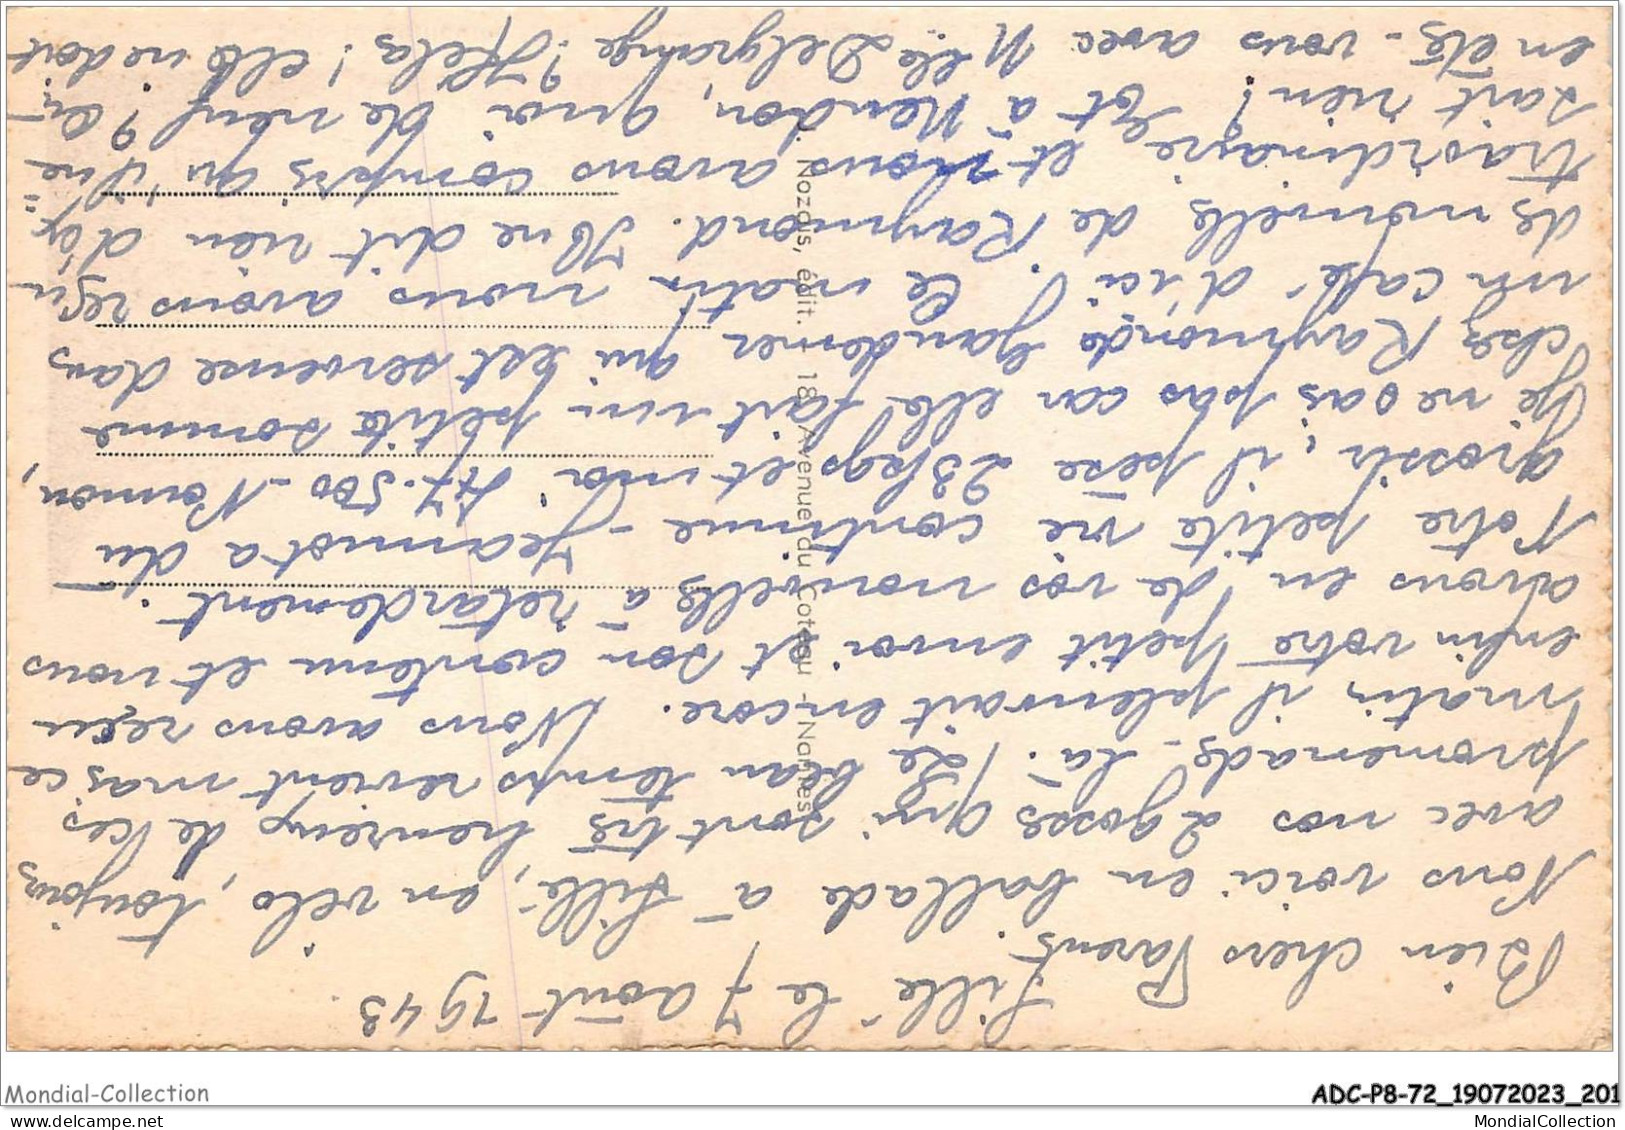 Fillé le 7 août 1943.
Bien chers Parents.
Nous voici en ballade à Fillé, en vélo, toujours
avec nos 2 gosses qui sont très heureux de ces
promenades-là. Le beau temps revient mais ce
matin il pleuvait encore. Nous avons reçu
enfin votre petit envoi et son contenu et nous
avons eu de vos nouvelles à retardement.
Notre petite vie continue - Jeannot a du
grossir, il pèse 23 kgs et moi 47.500 - Maman,
Je ne sais pas car elle fait une petite somme
chez Raymonde qui est serveuse dans
un café d'ici. Ce matin nous avons reçu
des nouvelles de Raymond. Il ne dit rien d'ex-
traordinaire et nous avons compris qu'il ne
sait rien! Et à Meudon, quoi de neuf? Où
en êtes-vous avec Mlle Delgrange? Hélas! elle ne doit
Nozais, édit. - 18, Avenue du Coteau - Nantes
Mondial-Collection
ADC-P8-72_19072023_201
MondialCollection